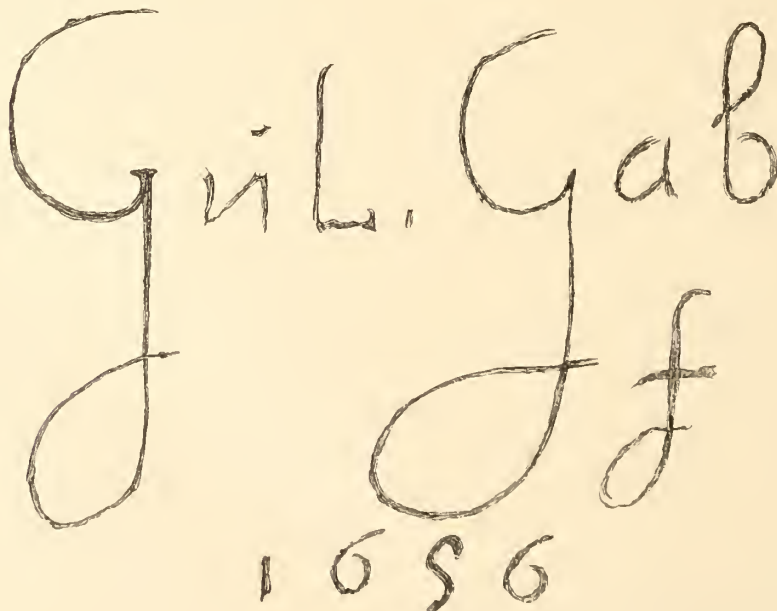 GuiL. Gab
f
1656